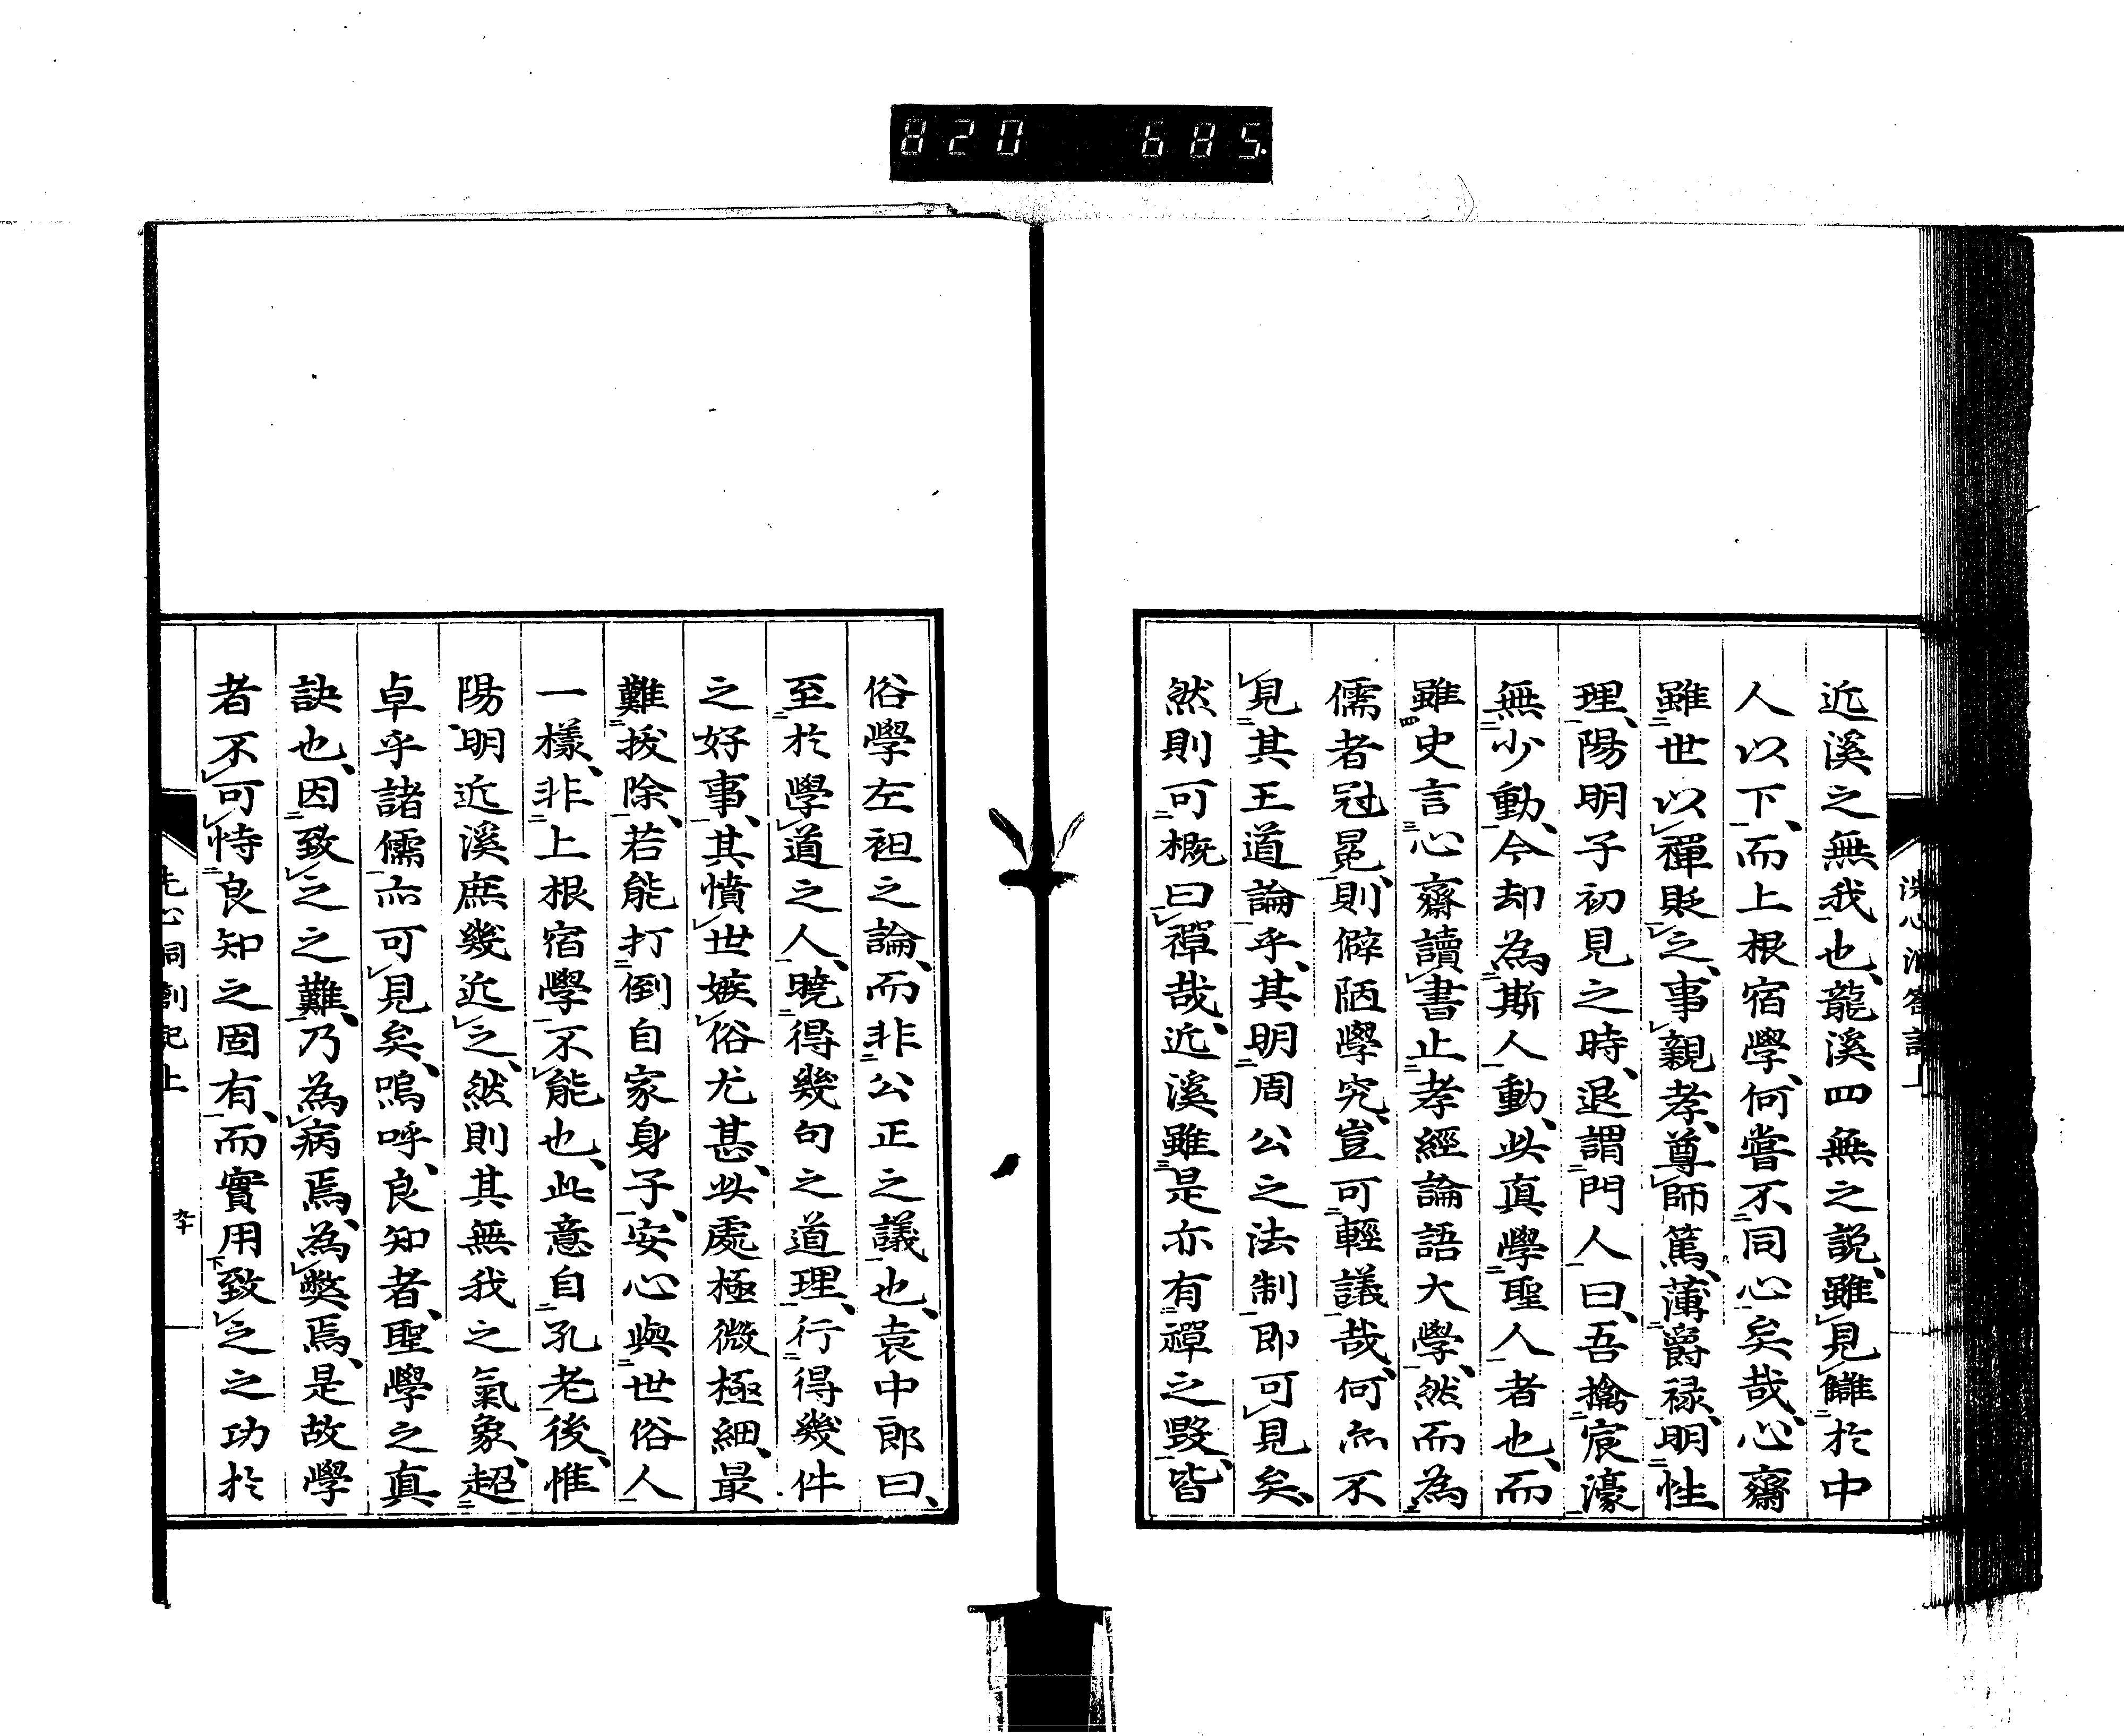 820 685.
近溪之無我也、龍溪四無之説、雖見讎於中
人以下、而上根宿學、何嘗不同心矣哉、心齋
雖世以禪貶之、事親孝、尊師篤、薄爵禄、明性
理、陽明子初見之時、退謂門人曰、吾擒宸濠
無少動、今却為斯人動、此真學聖人者也、而
雖史言心齋讀書止孝經論語大學、然而為
儒者冠冕、則僻陋學究、豈可輕議哉、何亦不
見其王道論乎、其明周公之法制、即可見矣、
然則可概曰禪哉、近溪雖是亦有禪之毀、皆
俗學左袒之論、而非公正之議也、袁中郎曰、
至於學道之人、曉得幾句之道理、行得幾件
之好事、其憤世嫉俗尤甚、此處極微極細、最
難拔除、若能打倒自家身子、安心與世俗人
一樣、非上根宿學不能也、此意自孔老後、惟
陽明近溪庶幾近之、然則其無我之氣象、超
卓乎諸儒亦可見矣、嗚呼、良知者、聖學之真
訣也、因致之之難、乃為病焉、為弊焉、是故學
者不可恃良知之固有、而實用致之之功於